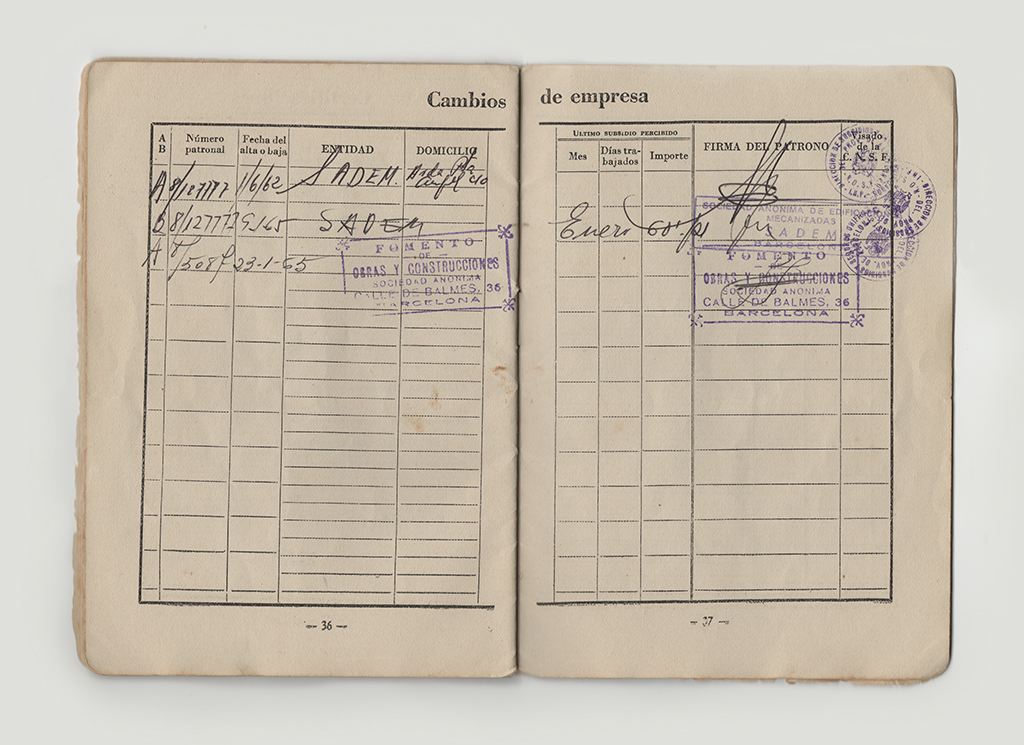 Cambios de empresa
A B
Número patronal
Fecha del alta o baja
ENTIDAD
DOMICILIO
A 8/127777 1/6/62 SADEM.
B 8/127777 SADEM
A 23-1-65
FOMENTO
DE
OBRAS Y CONSTRUCCIONES
SOCIEDAD ANONIMA
CALLE DE BALMES, 36
BARCELONA
— 36 —
ULTIMO SUBSIDIO PERCIBIDO
Mes
Días trabajados
Importe
FIRMA DEL PATRONO
Visado de la C. N. S. F.
Enero
SOCIEDAD ANONIMA DE
MECANIZADAS
SADEM
BARCELONA
FOMENTO
DE
OBRAS Y CONSTRUCCIONES
SOCIEDAD ANONIMA
CALLE DE BALMES, 36
BARCELONA
— 37 —